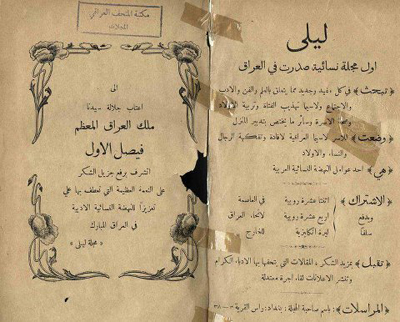 ليلى
اول مجلة نسائية صدرت في العراق
﴿تبحث﴾ في كل مفيد وجديد مما يتعلق بالعلم والفن والادب
والاجتماع ولاسيما تهذيب الفتاة وتربية
الاسرة وسائر ما يختص بتدبير المنزل
﴿وضعت﴾ للاسر لاسيما العراقية لافادة وتفكهة الرجال
والنساء والاولاد
﴿هي﴾ احد عوامل النهضة النسائية العربية
﴿الاشتراك﴾ اثنتا عشرة روبية في العاصمة
ويدفع اربع عشرة روبية لانحاء العراق
سلفا ليرة انكليزية للخارج
﴿تقبل﴾ بمزيد الشكر المقالات التي يتحفها بها الادباء الكرام
وتنشر الاعلانات لقاء اجرة معتدلة
﴿المراسلات﴾: باسم صاحبة المجلة: بغداد: راس القرية ٣–٣٨
مكتبة المتحف العراقي
المجلات
الى
اعتاب جلالة سيدنا
ملك العراق المعظم
فيصل الاول
اتشرف برفع جزيل الشكر
على النعمة العظيمة التي تعطف بها علي
تعزيزا للنهضة النسائية الادبية
في العراق المبارك
« مجلة ليلى »